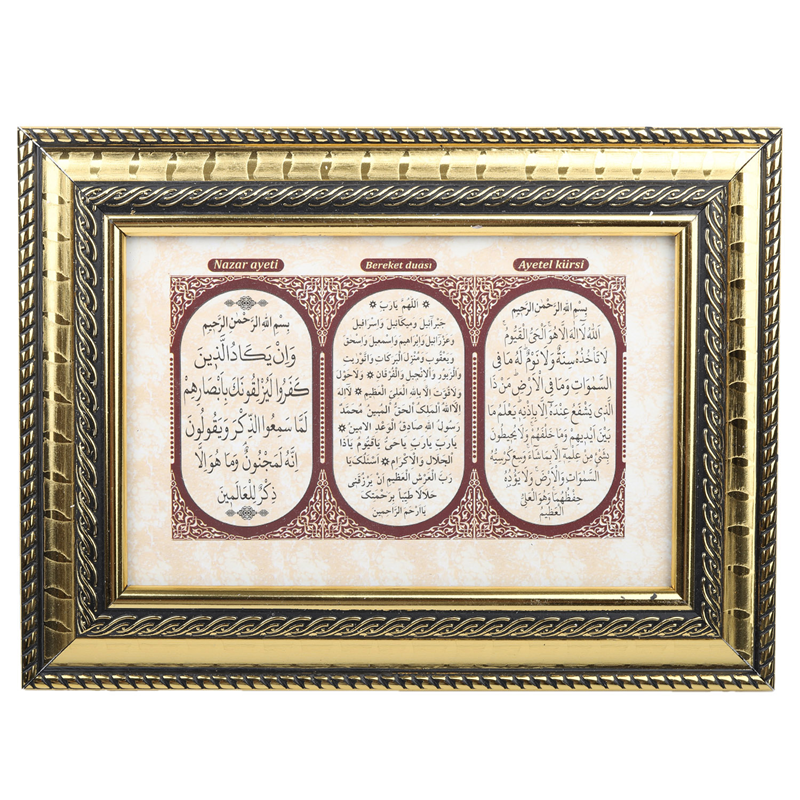 Nazar ayeti
بِسْمِ اللّٰهِ الرَّحْمٰنِ الرَّحِيمِ
وَاِنْ يَكَادُ الَّذِينَ
كَفَرُوا لَيُزْلِقُونَكَ بِاَبْصَارِهِمْ
لَمَّا سَمِعُوا الذِّكْرَ وَيَقُولُونَ
اِنَّهُ لَمَجْنُونٌ وَمَا هُوَ اِلَّا
ذِكْرٌ لِلْعَالَمِينَ
Bereket duası
اَللّٰهُمَّ يَارَبَّ
جَبْرَآئِيلَ وَمِيكَآئِيلَ وَاِسْرَافِيلَ
وَعَزْرَآئِيلَ وَاِبْرَاهِيمَ وَاِسْمٰعِيلَ وَاِسْحٰقَ
وَيَعْقُوبَ وَمُنْزِلَ الْبَرَكَاتِ وَالتَّوْرٰيةِ
وَالزَّبُورِ وَالْاِنْجِيلِ وَالْفُرْقَانِ وَلَاحَوْلَ
وَلَاقُوَّةَ اِلَّا بِاللّٰهِ الْعَلِيِّ الْعَظِيمِ لَااِلٰهَ
اِلَّا اللّٰهُ الْمَلِكُ الْحَقُّ الْمُبِينُ مُحَمَّدٌ
رَسُولُ اللّٰهِ صَادِقُ الْوَعْدِ الْاَمِينِ
يَارَبِّ يَارَبِّ يَاحَيُّ يَاقَيُّومُ يَاذَا
الْجَلَالِ وَالْاِكْرَامِ اَسْئَلُكَ يَا
رَبَّ الْعَرْشِ الْعَظِيمِ اَنْ يَرْزُقَنِي
حَلَالًا طَيِّبًا بِرَحْمَتِكَ
يَااَرْحَمَ الرَّاحِمِينَ
Ayetel kürsi
بِسْمِ اللّٰهِ الرَّحْمٰنِ الرَّحِيمِ
اَللّٰهُ لَااِلٰهَ اِلَّا هُوَ اَلْحَيُّ الْقَيُّومُ
لَا تَأْخُذُهُ سِنَةٌ وَلَا نَوْمٌ لَهُ مَا فِي
السَّمٰوَاتِ وَمَا فِي الْاَرْضِ مَنْ ذَا
الَّذِي يَشْفَعُ عِنْدَهُ اِلَّا بِاِذْنِهِ يَعْلَمُ مَا
بَيْنَ اَيْدِيهِمْ وَمَا خَلْفَهُمْ وَلَا يُحِيطُونَ
بِشَيْءٍ مِنْ عِلْمِهِ اِلَّا بِمَا شَاءَ وَسِعَ كُرْسِيُّهُ
السَّمٰوَاتِ وَالْاَرْضَ وَلَا يَؤُدُهُ
حِفْظُهُمَا وَهُوَ الْعَلِيُّ
الْعَظِيمُ